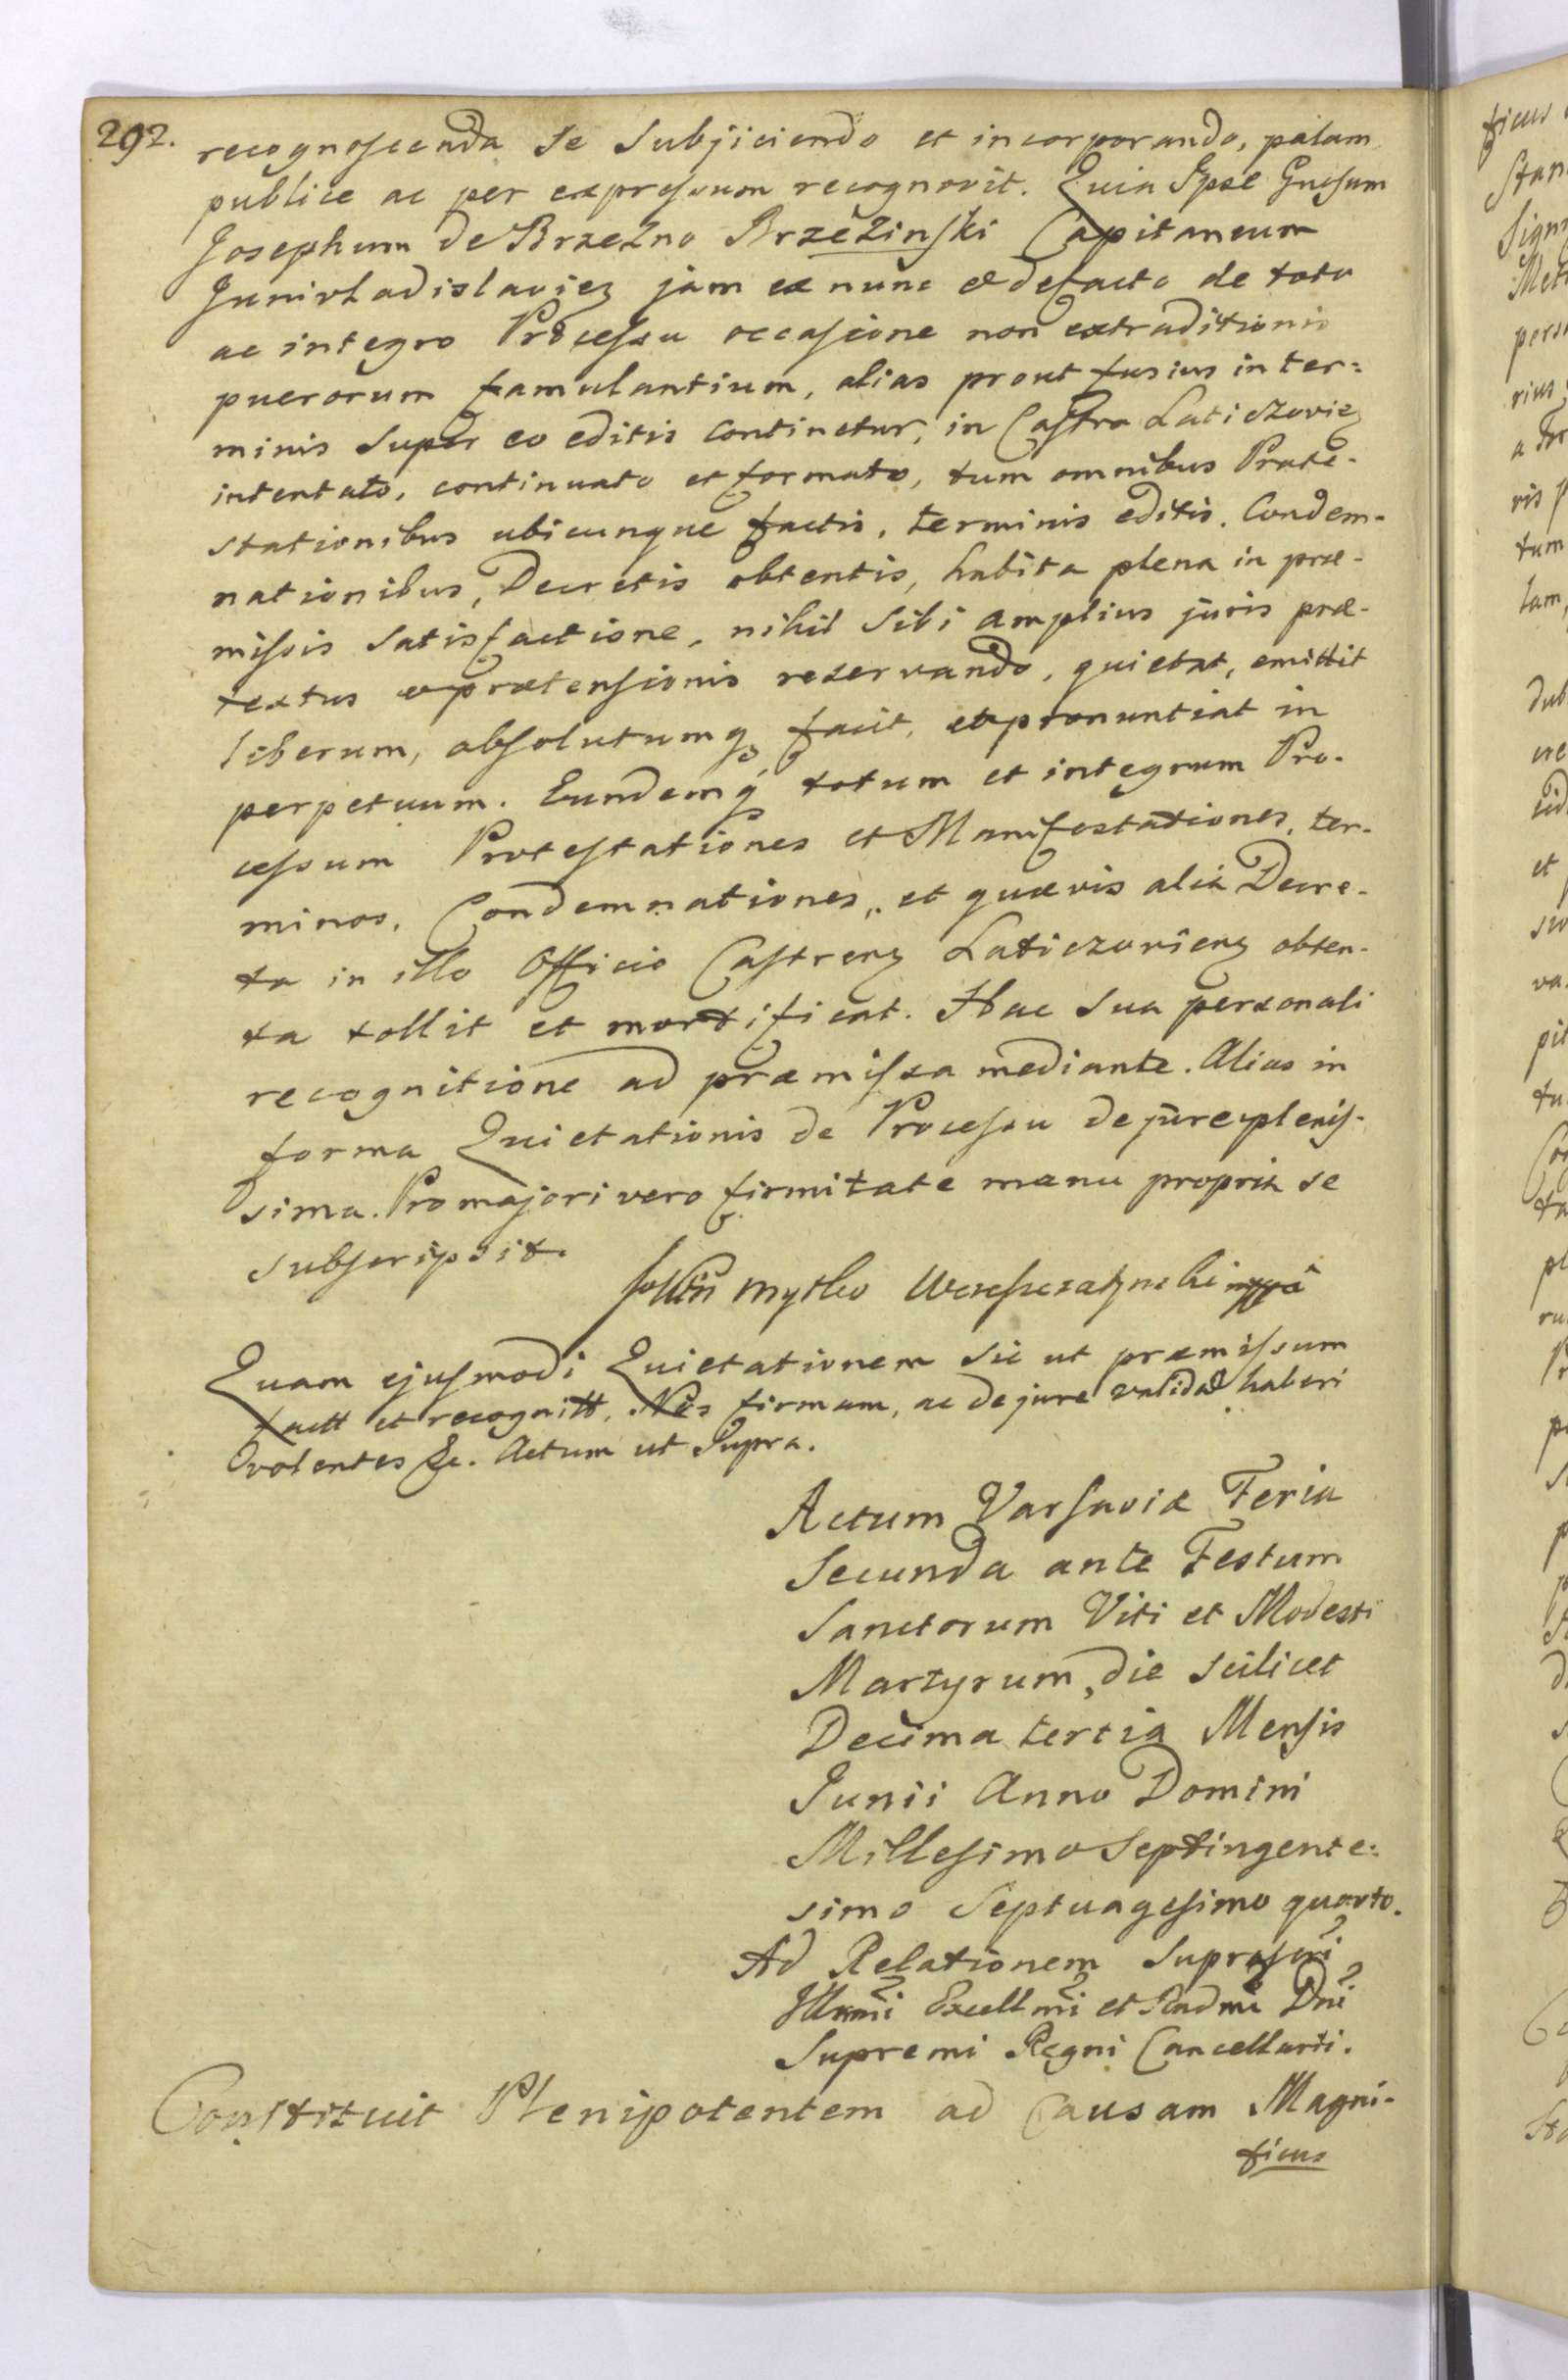 292.
recognoscenda se Subjiciendo et incorporando, palam
publice ac per expressum recognovit. Quia Ipse Gnosum
Josephum de Brzezno Brzezinski Capitaneum
Junivladislaviez jam ex nunc et defacto de toto
ac integro Processu occasione non extraditionis
puerorum famulantium, alias prout fusius in ter=
minis Super eo editis continetur, in Castro Laticzoviez
intentato, continuato et formato, tum omnibus Prote-
stationibus ubicunque factis, terminis editis. Condem-
nationibus, Decretis obtentis, habita plena in præ-
missis Satisfactione, nihil Sibi amplius juris præ-
textus et prætensionis reservando, quietat, emittit
liberum, absolutumq facit, et pronuntiat in
perpetuum. Eundemq totum et integrum Pro-
cessum Protestationes et Manifestationes, ter-
minos, Condemnationes, et quævis alia Decre-
ta in illo Officio Castrenz Laticzovienz obten-
ta tollit et mortificat. Hac Sua personali
recognitione ad præmissa mediante. Alias in
forma Quietationis de Processu de jure plenis-
sima. Pro majori vero firmitate manu propria se
subscripsit.
mytko mppâ
Quam ejusmodi Quietationem Sic ut præmissum
factt et recognitt, Nos firmam, ac de jure validã haberi
volentes &c. Actum ut Supra.
Actum Varsaviæ Feria
Secunda ante Festum
Sanctorum Viti et Modesti
Martyrum, die Scilicet
Decima tertia Mensis
Junii Anno Domini
Millesimo Septingente:
simo Septuagesimo quarto.
Ad Relationem Suprascri
Illmi Excellmi et Rndmi Dni
Supremi Regni Cancellarii.
Constituit Plenipotentem ad Causam Magni-
ficus